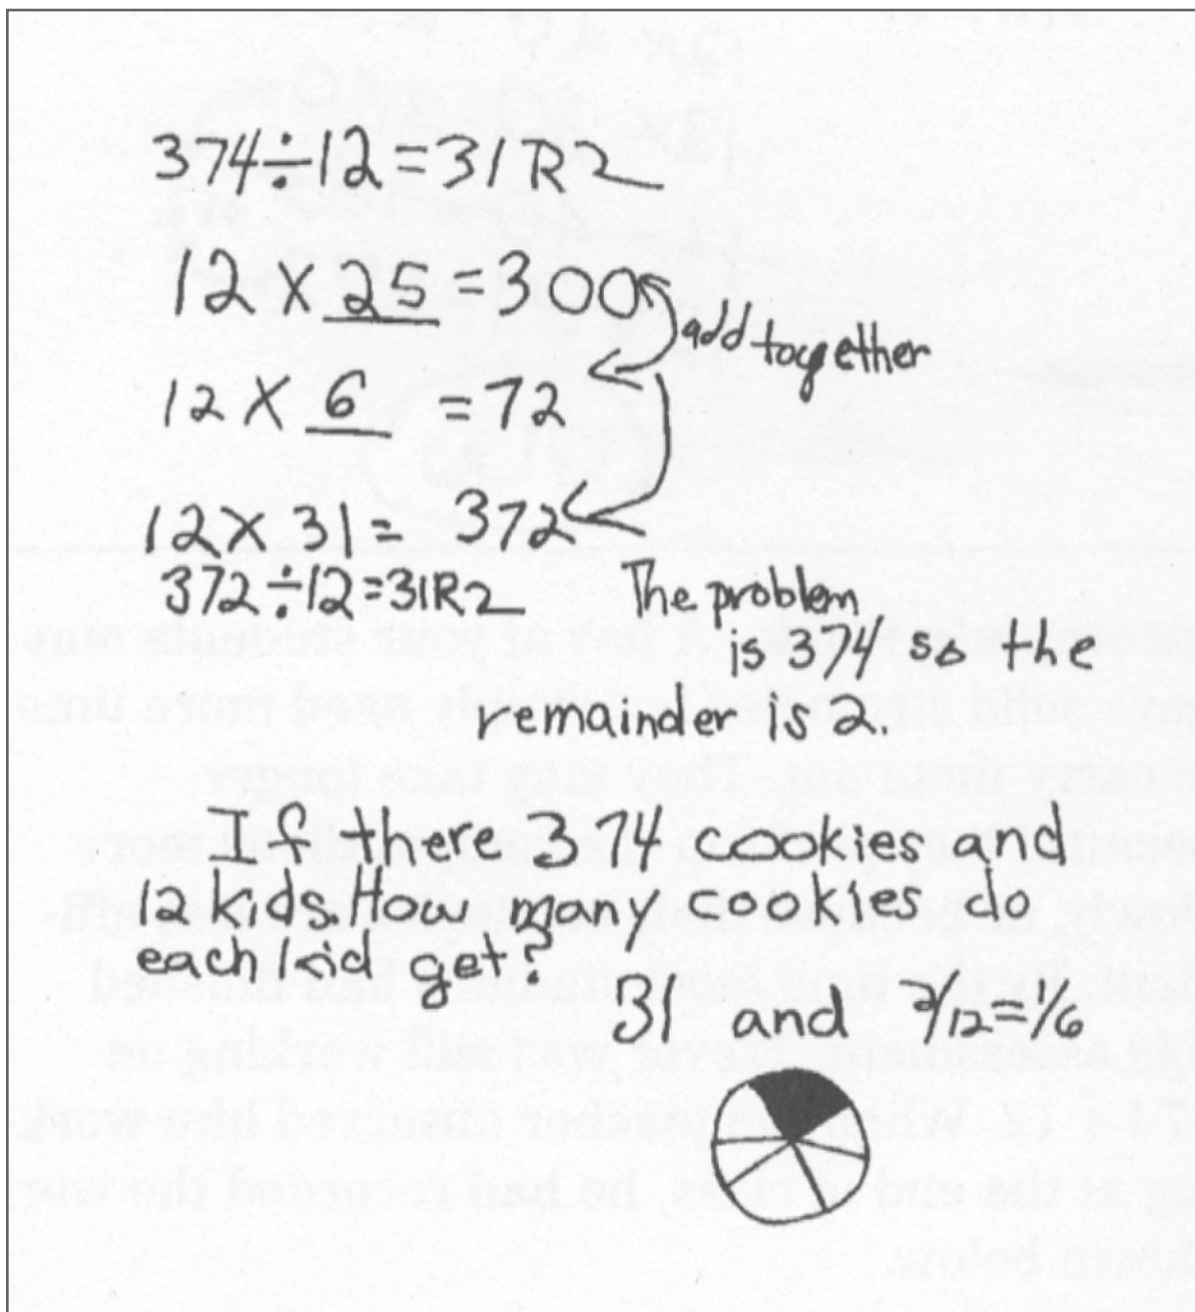 374÷12=31R2
12 X 25 = 300
add together
12 X 6 = 72
12 X 31 = 372
372÷12=31R2
The problem
is 374 so the
remainder is 2.
If there 374 cookies and
12 kids. How many cookies do
each kid get?
31 and 2/12=1/6